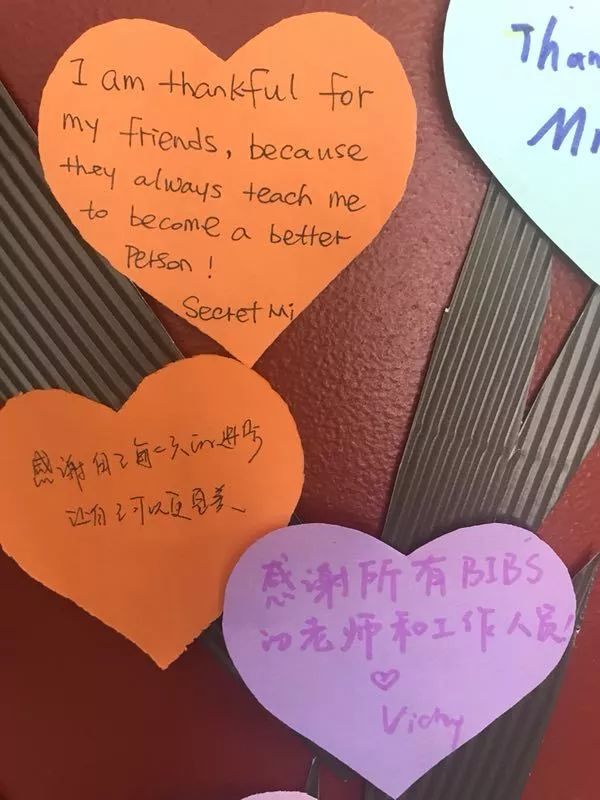 I am thankful for
my friends, because
they always teach me
to become a better
Person!
Secret Mi
Than
Mr
感谢自己每一天的进步
让自己可以更完美
感谢所有BIBS
的老师和工作人员!
♡
Vicky